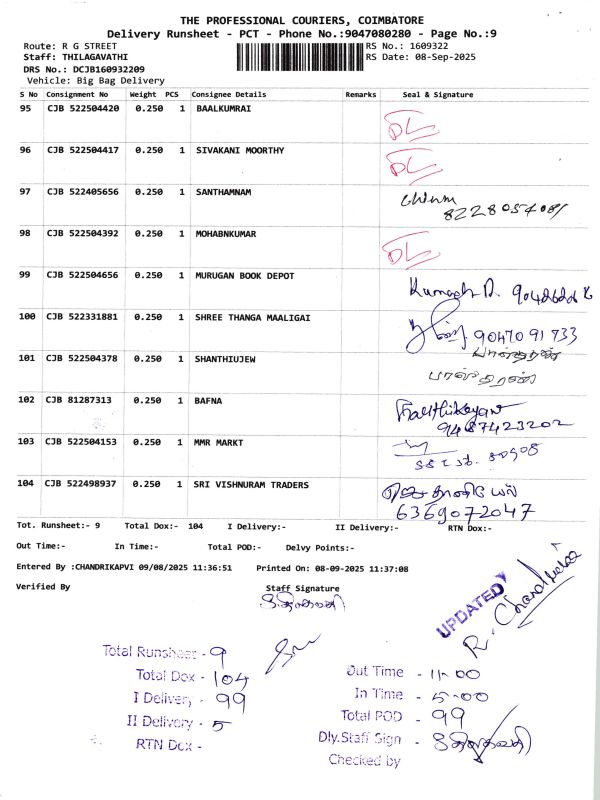 THE PROFESSIONAL COURIERS, COIMBATORE
Delivery Runsheet - PCT - Phone No.:9047080280 - Page No.:9
Route: R G STREET RS No.: 1609322
Staff: THILAGAVATHI RS Date: 08-Sep-2025
DRS No.: DCJB160932209
Vehicle: Big Bag Delivery
S No Consignment No Weight PCS Consignee Details Remarks Seal & Signature
95 CJB 522504420 0.250 1 BAALKUMRAI DL
96 CJB 522504417 0.250 1 SIVAKANI MOORTHY DL
97 CJB 522405656 0.250 1 SANTHAMNAM
8228054081
98 CJB 522504392 0.250 1 MOHABNKUMAR DL
99 CJB 522504656 0.250 1 MURUGAN BOOK DEPOT
100 CJB 522331881 0.250 1 SHREE THANGA MAALIGAI 9047091733
101 CJB 522504378 0.250 1 SHANTHIUJEW
102 CJB 81287313 0.250 1 BAFNA
9487423202
103 CJB 522504153 0.250 1 MMR MARKT
104 CJB 522498937 0.250 1 SRI VISHNURAM TRADERS
6369072047
Tot. Runsheet:- 9 Total Dox:- 104 I Delivery:- II Delivery:- RTN Dox:-
Out Time:- In Time:- Total POD:- Delvy Points:-
Entered By :CHANDRIKAPVI 09/08/2025 11:36:51 Printed On: 08-09-2025 11:37:08
Verified By Staff Signature
UPDATED
Total Runsheet - 9
Total Dox - 104
I Delivery - 99
II Delivery - 5
RTN Dox -
Out Time - 11-00
In Time - 5-00
Total POD - 99
Dly.Staff Sign -
Checked by